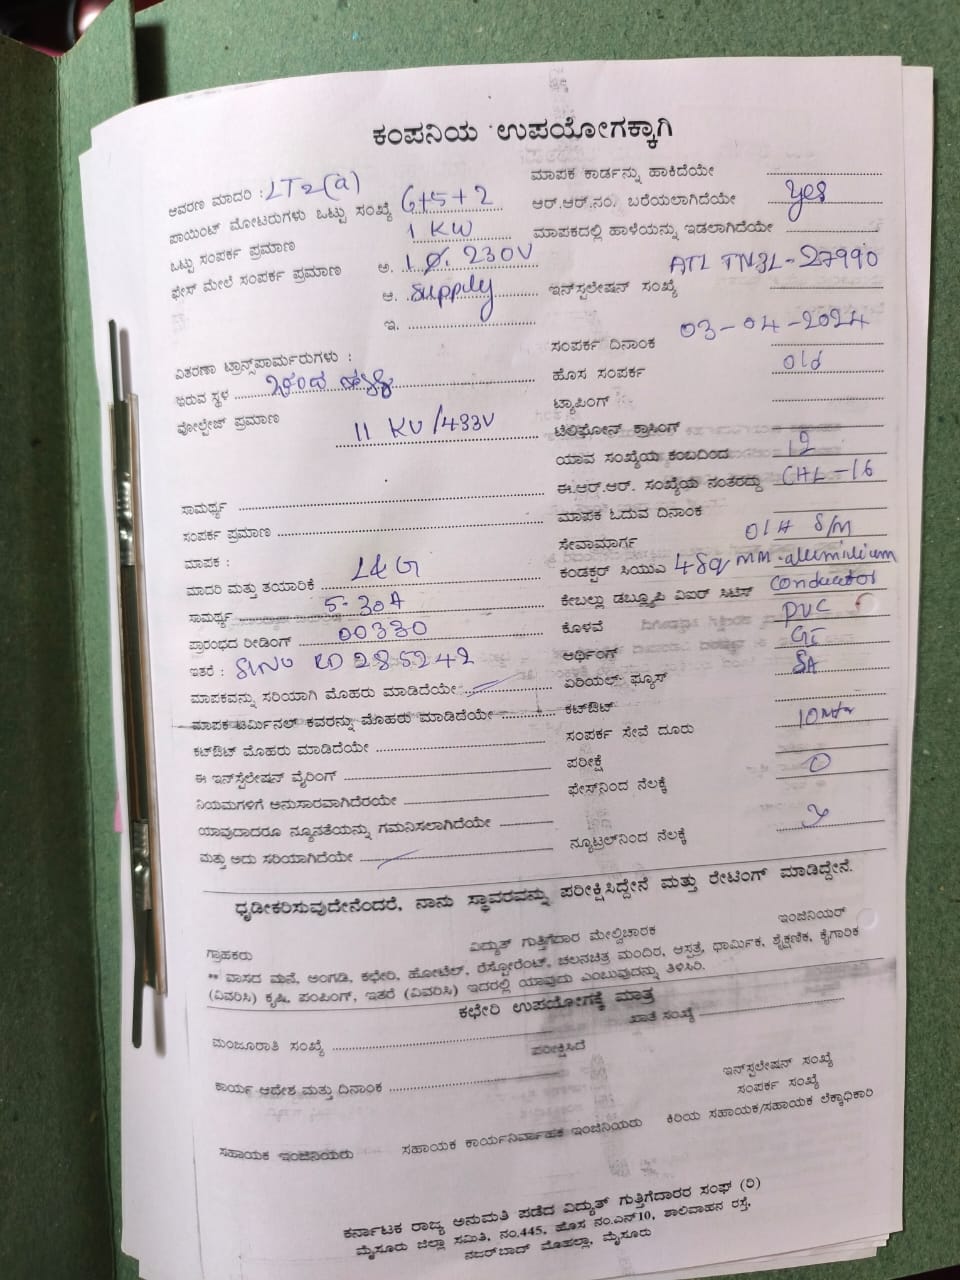 ಕಂಪನಿಯ ಉಪಯೋಗಕ್ಕಾಗಿ
ಆವರಣ ಮಾದರಿ : LT2(a)
ಪಾಯಿಂಟ್ ಮೋಟರುಗಳು ಒಟ್ಟು ಸಂಖ್ಯೆ 6+5+2
ಒಟ್ಟು ಸಂಪರ್ಕ ಪ್ರಮಾಣ 1 KW
ಫೇಸ್ ಮೇಲೆ ಸಂಪರ್ಕ ಪ್ರಮಾಣ ಅ. 1 Ø. 230V
ಆ. Supply
ಇ.
ವಿತರಣಾ ಟ್ರಾನ್ಸ್‌ಫಾರ್ಮರುಗಳು :
ಇರುವ ಸ್ಥಳ
ವೋಲ್ಟೇಜ್ ಪ್ರಮಾಣ 11 KV/433V
ಸಾಮರ್ಥ್ಯ
ಸಂಪರ್ಕ ಪ್ರಮಾಣ
ಮಾಪಕ :
ಮಾದರಿ ಮತ್ತು ತಯಾರಿಕೆ L&G
ಸಾಮರ್ಥ್ಯ 5-30A
ಪ್ರಾರಂಭದ ರೀಡಿಂಗ್ 00330
ಇತರೆ : Sl No RD 285242
ಮಾಪಕವನ್ನು ಸರಿಯಾಗಿ ಮೊಹರು ಮಾಡಿದೆಯೇ
ಮಾಪಕ ಟರ್ಮಿನಲ್ ಕವರನ್ನು ಮೊಹರು ಮಾಡಿದೆಯೇ
ಕಟ್‌ಔಟ್ ಮೊಹರು ಮಾಡಿದೆಯೇ
ಈ ಇನ್‌ಸ್ಟಲೇಷನ್ ವೈರಿಂಗ್
ನಿಯಮಗಳಿಗೆ ಅನುಸಾರವಾಗಿದೆರಯೇ
ಯಾವುದಾದರೂ ನ್ಯೂನತೆಯನ್ನು ಗಮನಿಸಲಾಗಿದೆಯೇ
ಮತ್ತು ಅದು ಸರಿಯಾಗಿದೆಯೇ
ಮಾಪಕ ಕಾರ್ಡನ್ನು ಹಾಕಿದೆಯೇ
ಆರ್.ಆರ್.ನಂ. ಬರೆಯಲಾಗಿದೆಯೇ Yes
ಮಾಪಕದಲ್ಲಿ ಹಾಳೆಯನ್ನು ಇಡಲಾಗಿದೆಯೇ
ಇನ್‌ಸ್ಟಲೇಷನ್ ಸಂಖ್ಯೆ ATL TN3L-27990
ಸಂಪರ್ಕ ದಿನಾಂಕ 03-04-2024
ಹೊಸ ಸಂಪರ್ಕ Old
ಟ್ಯಾಪಿಂಗ್
ಟೆಲಿಫೋನ್ ಕ್ರಾಸಿಂಗ್
ಯಾವ ಸಂಖ್ಯೆಯ ಕಂಬದಿಂದ 12
ಈ.ಆರ್.ಆರ್. ಸಂಖ್ಯೆಯ ನಂತರದ್ದು CHL-16
ಮಾಪಕ ಓದುವ ದಿನಾಂಕ
ಸೇವಾಮಾರ್ಗ OLH S/M
ಕಂಡಕ್ಟರ್ ಸಿಯುಎ 4Sq MM aluminium
ಕೇಬಲ್ಲು ಡಬ್ಲ್ಯೂಪಿ ವಿಐರ್ ಸಿಟಿಸ್ Conductor
ಕೊಳವೆ PVC
ಅರ್ಥಿಂಗ್ GI
ಏರಿಯಲ್ ಫ್ಯೂಸ್ 5A
ಕಟ್‌ಔಟ್
ಸಂಪರ್ಕ ಸೇವೆ ದೂರು 10 Mtr
ಪರೀಕ್ಷೆ
ಫೇಸ್‌ನಿಂದ ನೆಲಕ್ಕೆ 0
ನ್ಯೂಟ್ರಲ್‌ನಿಂದ ನೆಲಕ್ಕೆ
ಧೃಡೀಕರಿಸುವುದೇನೆಂದರೆ, ನಾನು ಸ್ಥಾವರವನ್ನು ಪರೀಕ್ಷಿಸಿದ್ದೇನೆ ಮತ್ತು ರೇಟಿಂಗ್ ಮಾಡಿದ್ದೇನೆ.
ಗ್ರಾಹಕರು ವಿದ್ಯುತ್ ಗುತ್ತಿಗೆದಾರ ಮೇಲ್ವಿಚಾರಕ ಇಂಜಿನಿಯರ್
** ವಾಸದ ಮನೆ, ಅಂಗಡಿ, ಕಛೇರಿ, ಹೋಟೆಲ್, ರೆಸ್ಟೋರೆಂಟ್, ಚಲನಚಿತ್ರ ಮಂದಿರ, ಆಸ್ಪತ್ರೆ, ಧಾರ್ಮಿಕ, ಶೈಕ್ಷಣಿಕ, ಕೈಗಾರಿಕ
(ವಿವರಿಸಿ) ಕೃಷಿ, ಪಂಪಿಂಗ್, ಇತರೆ (ವಿವರಿಸಿ) ಇದರಲ್ಲಿ ಯಾವುದು ಎಂಬುವುದನ್ನು ತಿಳಿಸಿರಿ.
ಕಛೇರಿ ಉಪಯೋಗಕ್ಕೆ ಮಾತ್ರ
ಮಂಜೂರಾತಿ ಸಂಖ್ಯೆ ಖಾತೆ ಸಂಖ್ಯೆ
ಪರೀಕ್ಷಿಸಿದೆ
ಕಾರ್ಯ ಆದೇಶ ಮತ್ತು ದಿನಾಂಕ ಇನ್‌ಸ್ಟಲೇಷನ್ ಸಂಖ್ಯೆ
ಸಂಪರ್ಕ ಸಂಖ್ಯೆ
ಸಹಾಯಕ ಇಂಜಿನಿಯರು ಸಹಾಯಕ ಕಾರ್ಯನಿರ್ವಾಹಕ ಇಂಜಿನಿಯರು ಕಿರಿಯ ಸಹಾಯಕ/ಸಹಾಯಕ ಲೆಕ್ಕಾಧಿಕಾರಿ
ಕರ್ನಾಟಕ ರಾಜ್ಯ ಅನುಮತಿ ಪಡೆದ ವಿದ್ಯುತ್ ಗುತ್ತಿಗೆದಾರರ ಸಂಘ (ರಿ)
ಮೈಸೂರು ಜಿಲ್ಲಾ ಸಮಿತಿ, ನಂ.445, ಹೊಸ ನಂ.ಎನ್10, ಶಾಲಿವಾಹನ ರಸ್ತೆ,
ನಜರ್‌ಬಾದ್ ಮೊಹಲ್ಲಾ, ಮೈಸೂರು